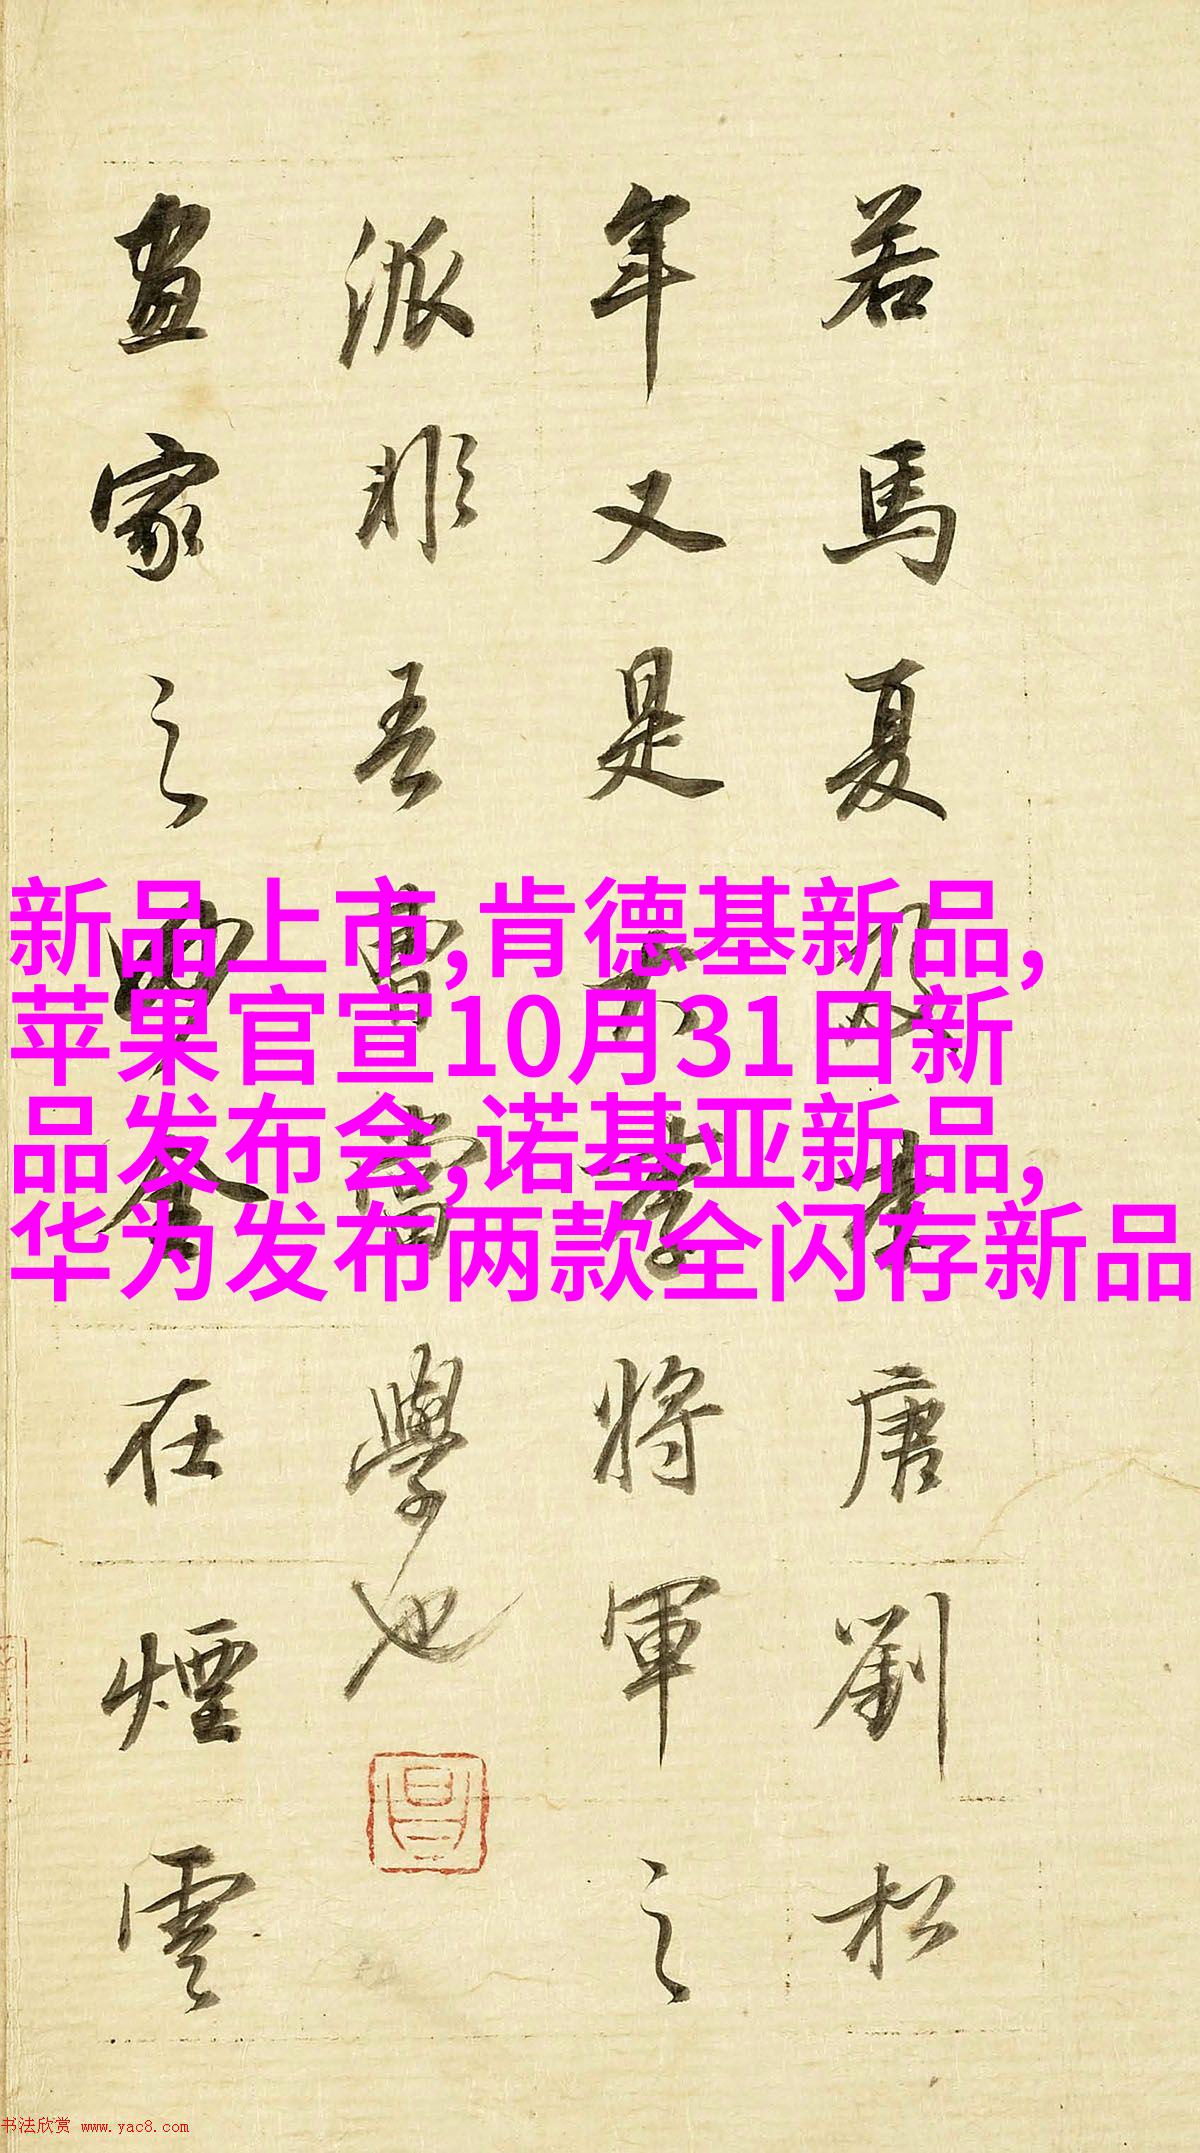 若馬夏及李唐劉松
年又是大李將軍之
派非吾曹當學也
畫家之妙全在煙雲
新品上市,肯德基新品,
苹果官宣10月31日新
品发布会,诺基亚新品,
华为发布两款全闪存新品
书法欣赏 www.yac8.com